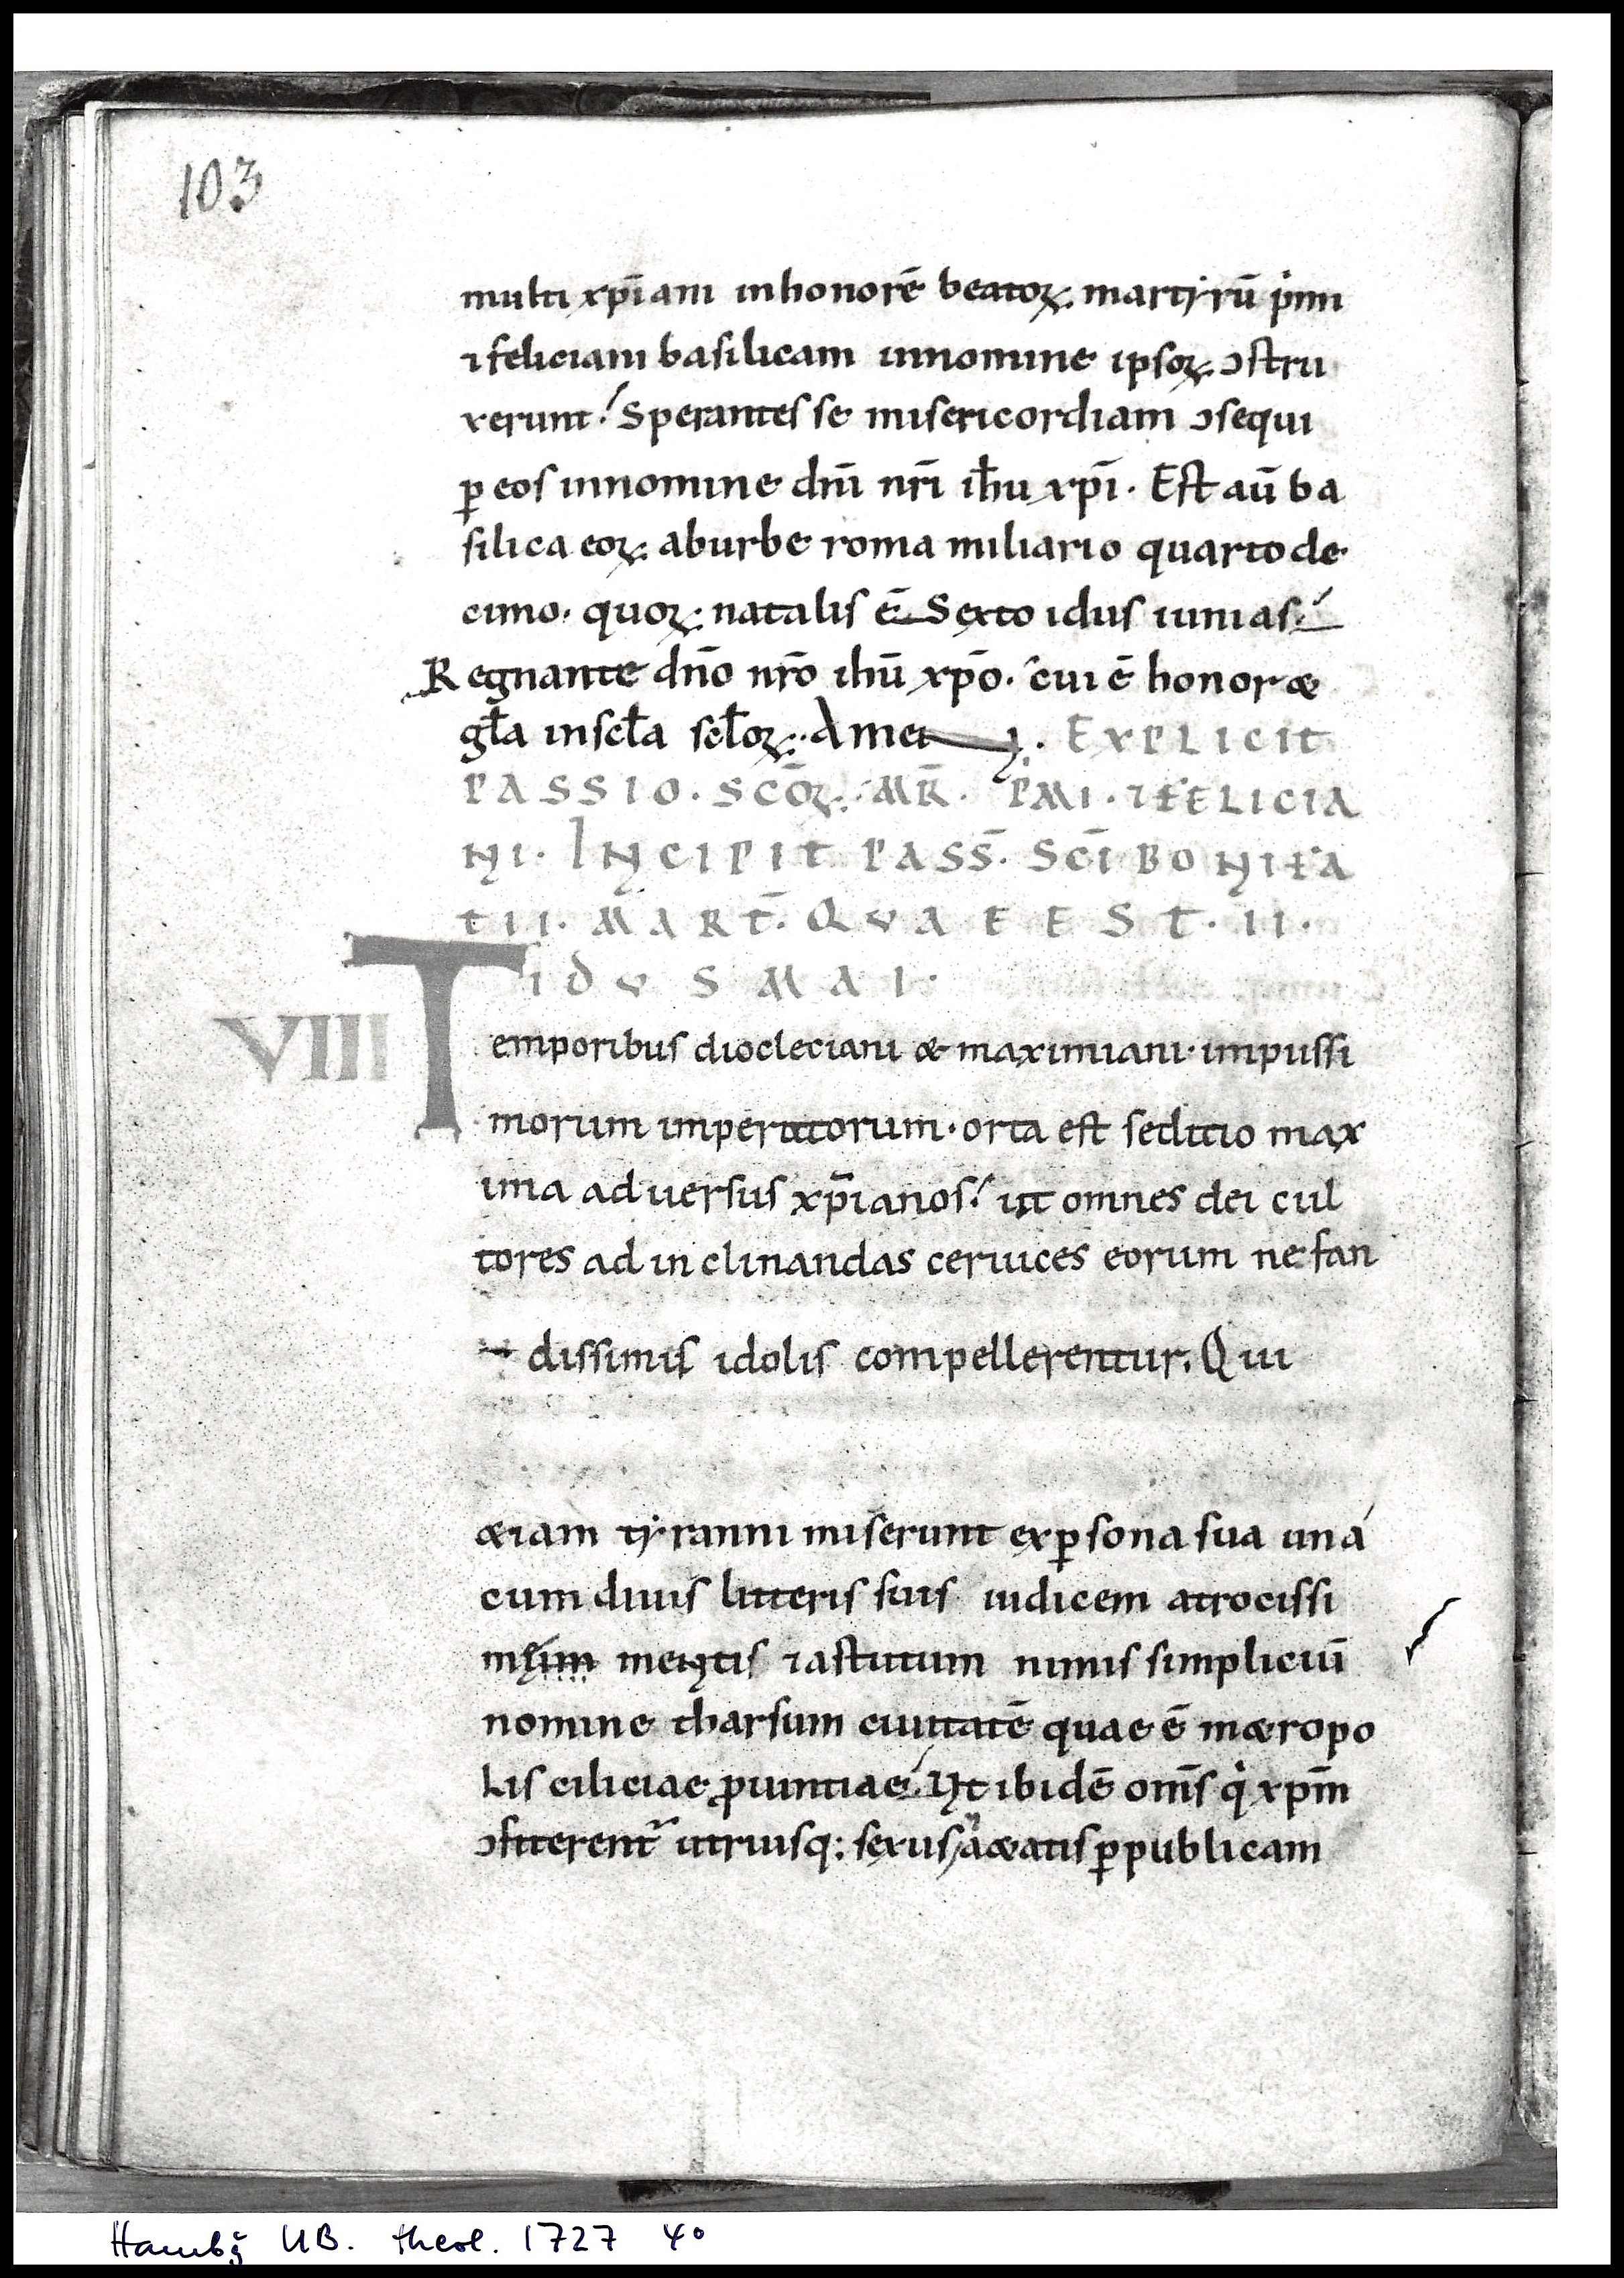 103
multi xp̄iani inhonorē beatoꝝ martyrū p̍imi
⁊ feliciani basilicam innomine ipsoꝝ ↄstru
xerunt. Sperantes se misericordiam ↄsequi
ꝑ eos innomine dn̄i nr̄i ih̄u xp̄i. Est aū ba
silica eoꝝ aburbe roma miliario quarto de
cimo. quoꝝ natalis ē Sexto idus iunias.
Regnante dn̄o nr̄o ihū xp̄o. cui ē honor &
gl̄a inscl̄a scl̄oꝝ. Amen. EXPLICIT
PASSIO. SCŌꝝ. MR̄. PMI. ⁊ FELICIA
NI. INCIPIT PASS̄. SC̄I BONIFA
TII. MART̄. QVAE EST. II.
IDVS MAI.
VIII
Temporibus diocleciani & maximiani. impiissi
morum imperatorum. orta est seditio max
ima aduersus xp̄ianos. ut omnes dei cul
tores ad inclinandas ceruices eorum nefan
dissimis idolis compellerentur. Qui
&iam tyranni miserunt exꝑsona sua una
cum diuis litteris suis iudicem atrocissi
mentis ⁊ astutum nimis simpliciū
nomine tharsum ciuitatē quae ē m&ropo
Lis ciliciae ꝓuintiae. Ut ibidē om̄s q̍ xp̄m
ↄfiterent᷑ utriusq: sexus ac &atis ꝑpublicam
Hambg UB. theol. 1727 4°